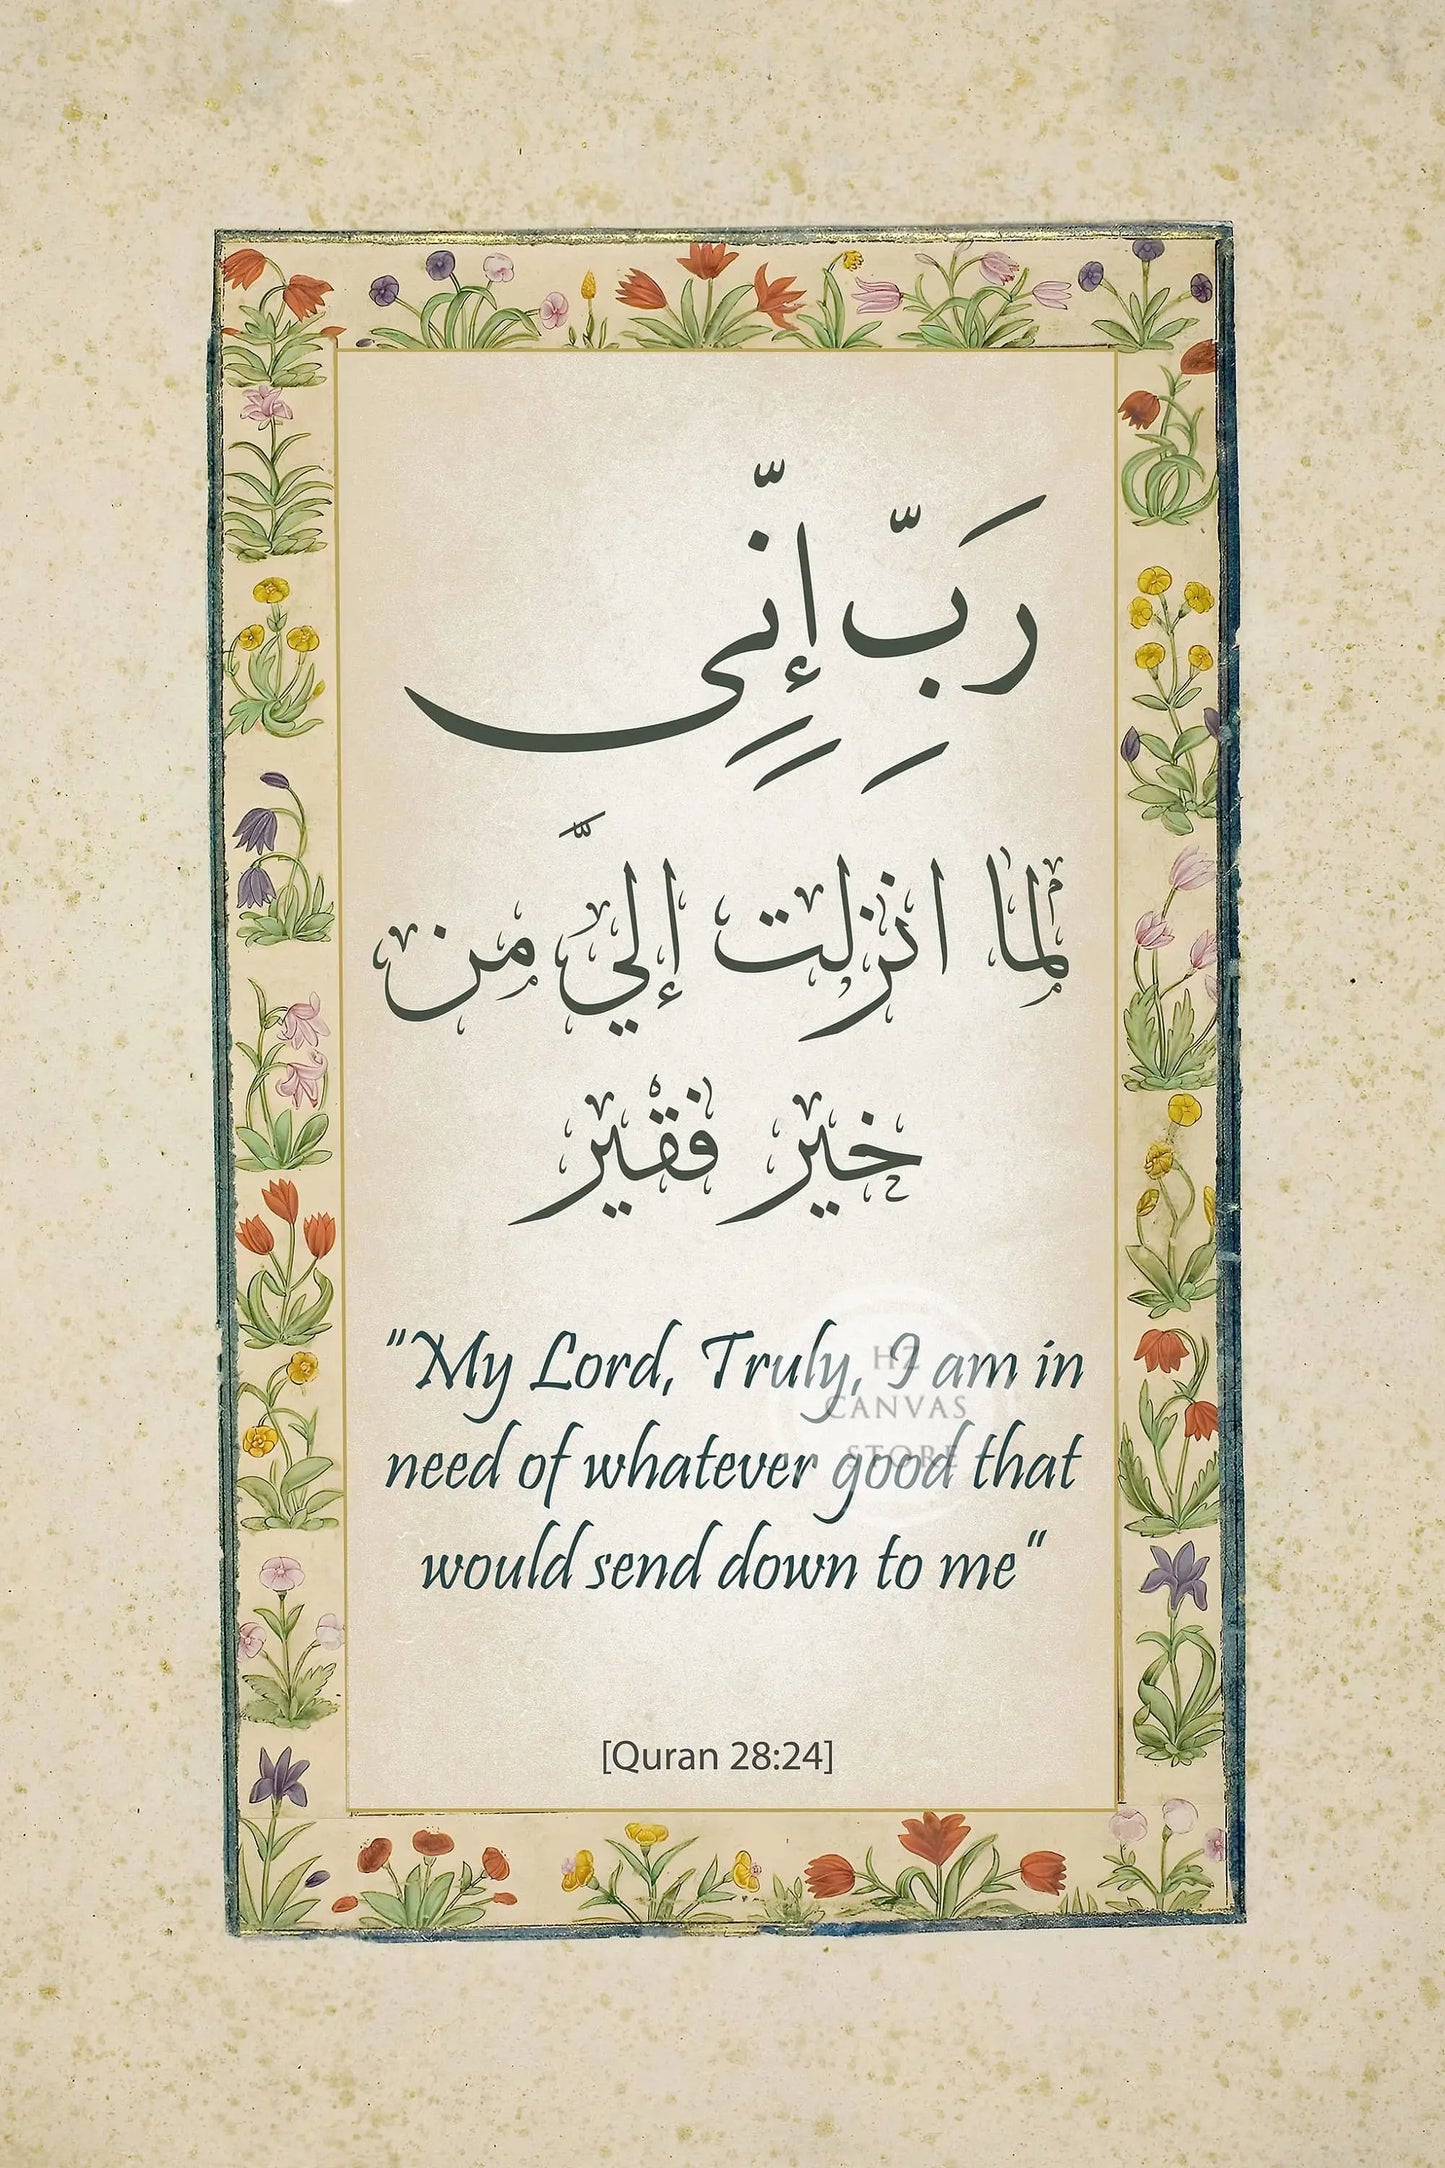 رَبِّ إِنِّى
لما انزلت إليَّ من
خير فقير
"My Lord, Truly, I am in
need of whatever good that
would send down to me"
HZ
CANVAS
STORE
[Quran 28:24]